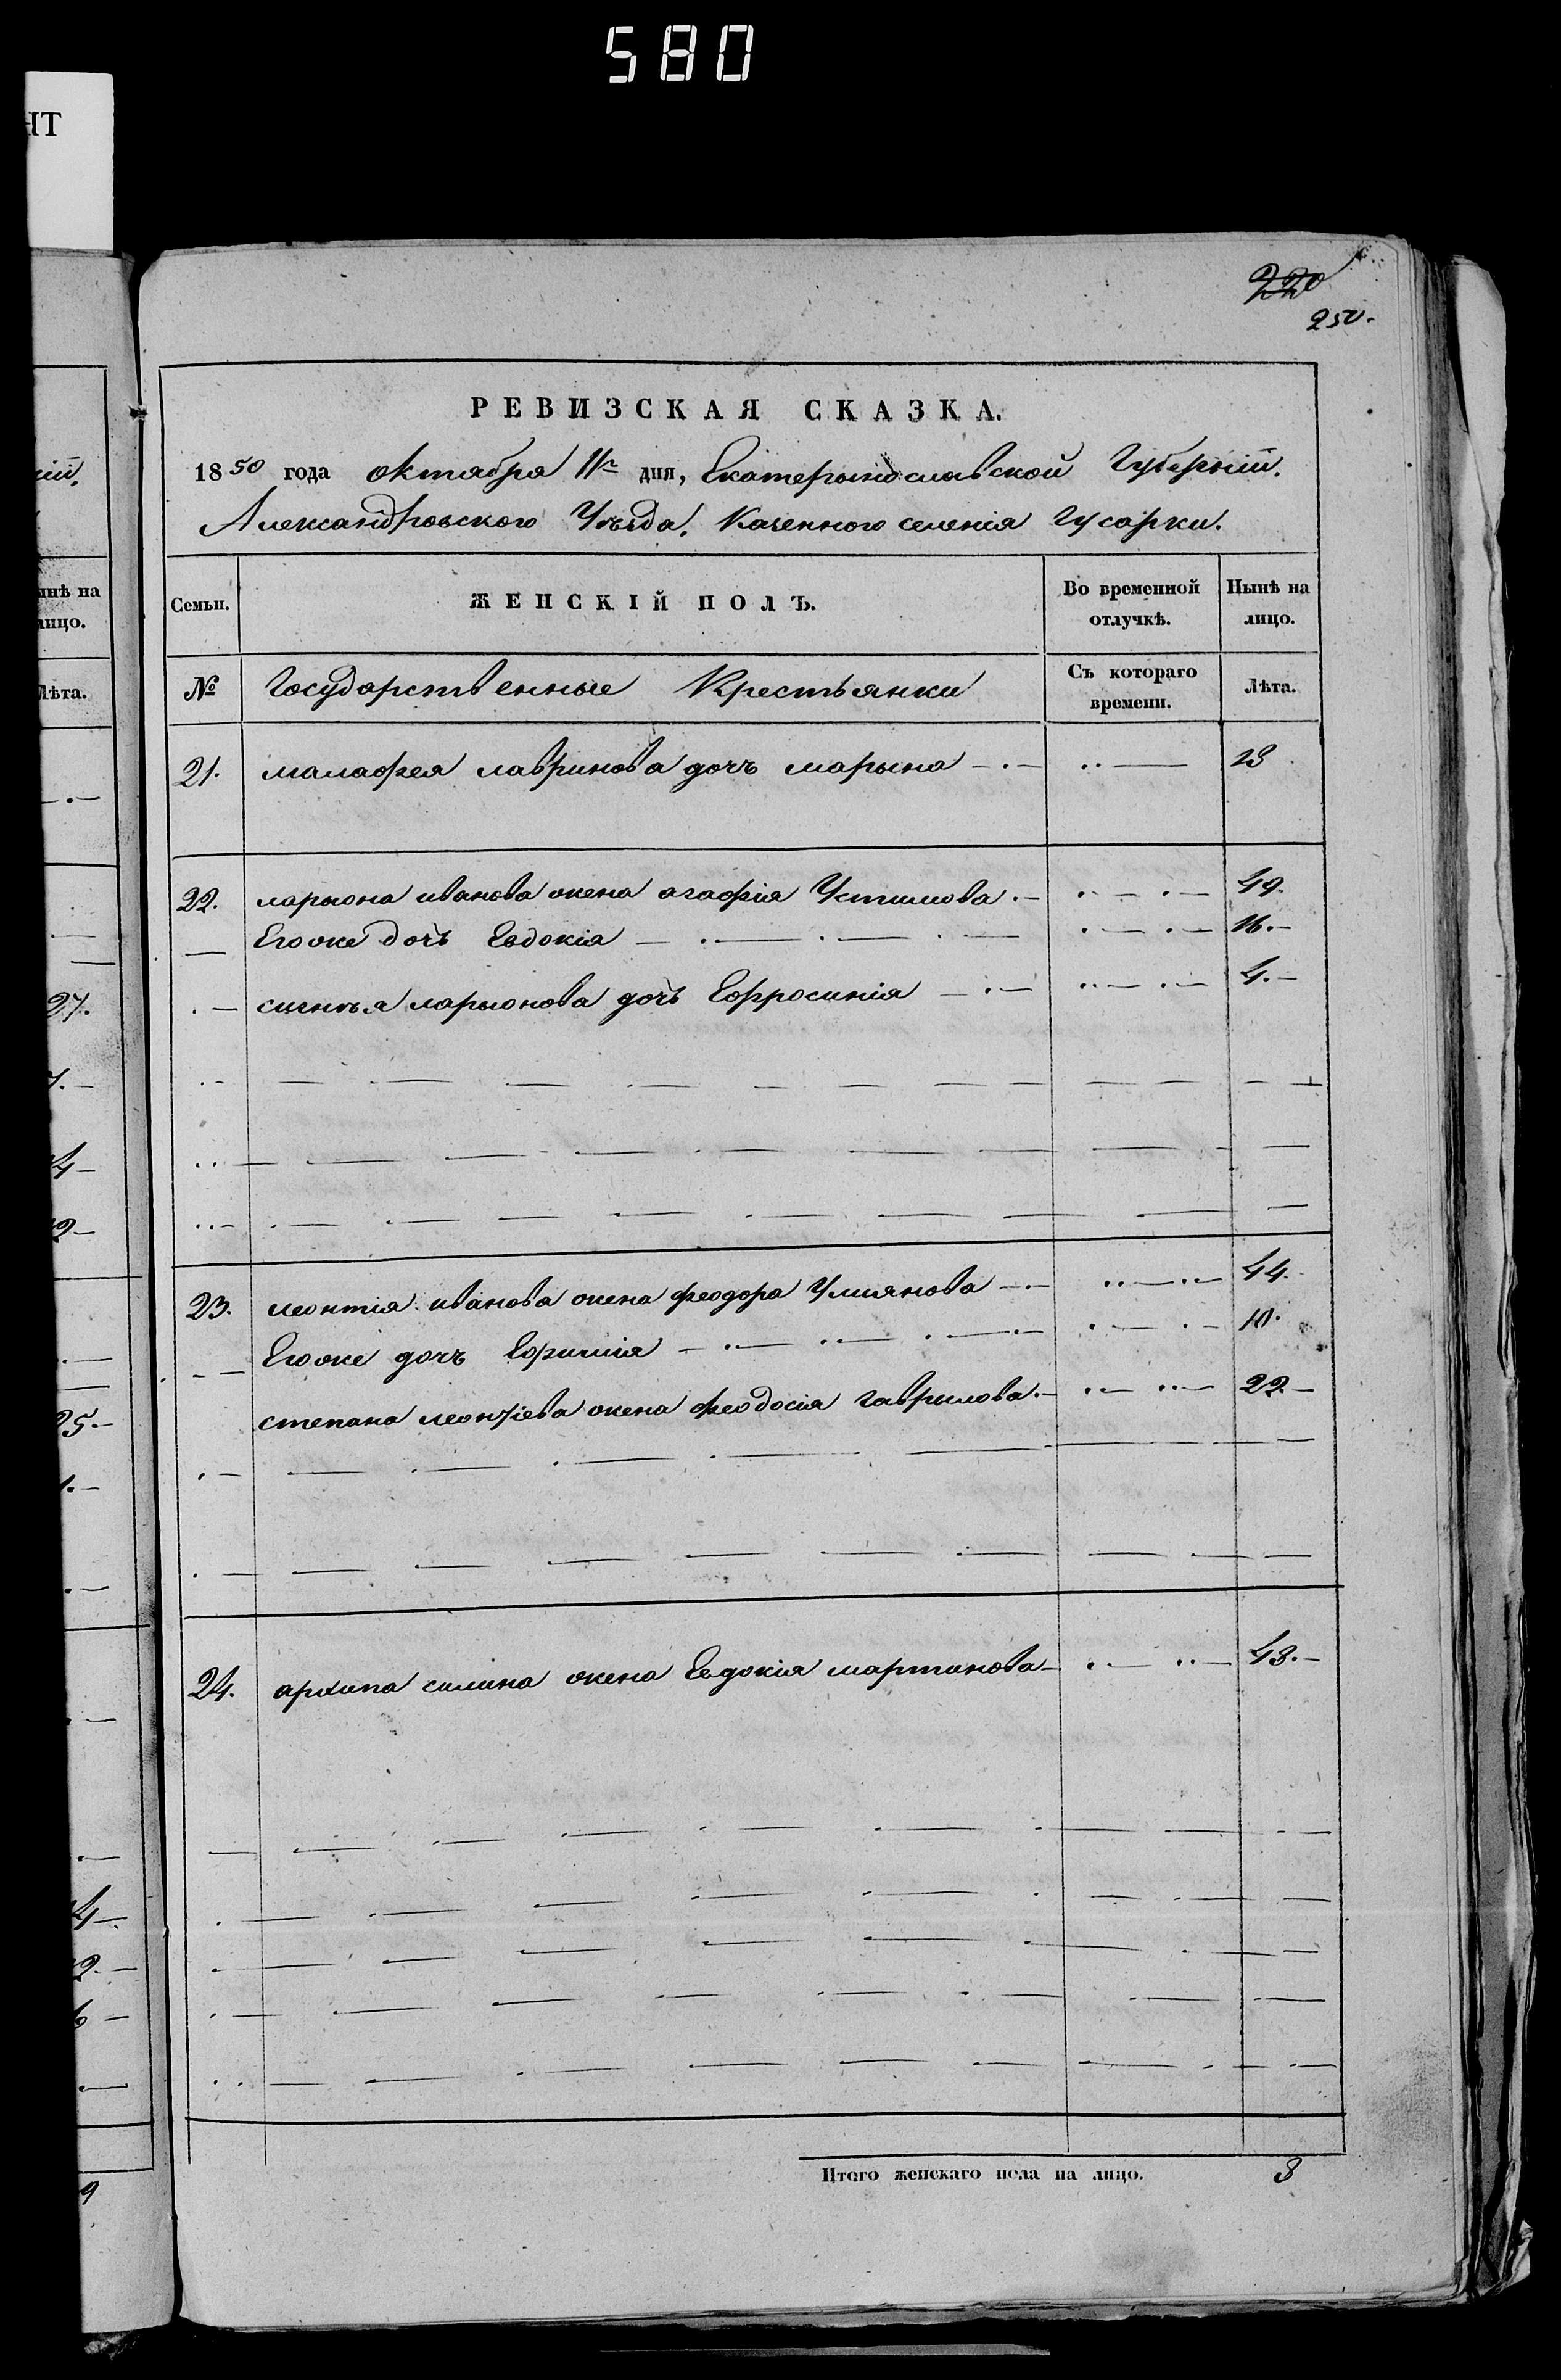 580
НТ
220
250.
РЕВИЗСКАЯ СКАЗКА.
1850 года октября 11го дня, Екатеринославской Губерніи.
Александровского Уѣзда, Казенного селенія Гусарки.
Семьи.
ЖЕНСКІЙ ПОЛЪ.
Во временной отлучкѣ.
Нынѣ на лицо.
№
Государственные Крестьянки
Съ котораго времени.
Лѣта.
21. малафея лавринова дочъ марына 23
22. ларыона иванова жена агафія Устимова 49.
Егоже дочъ Евдокія 16.
ларыонова дочъ Ефросинія 4.
23. леонтія иванова жена феодора 44.
Егоже дочъ Ефимія 10.
степана леонтіева жена феодосія гаврилова 22.
24. архипа силина жена Евдокія мартинова 43.
Итого женскаго пола на лицо. 8